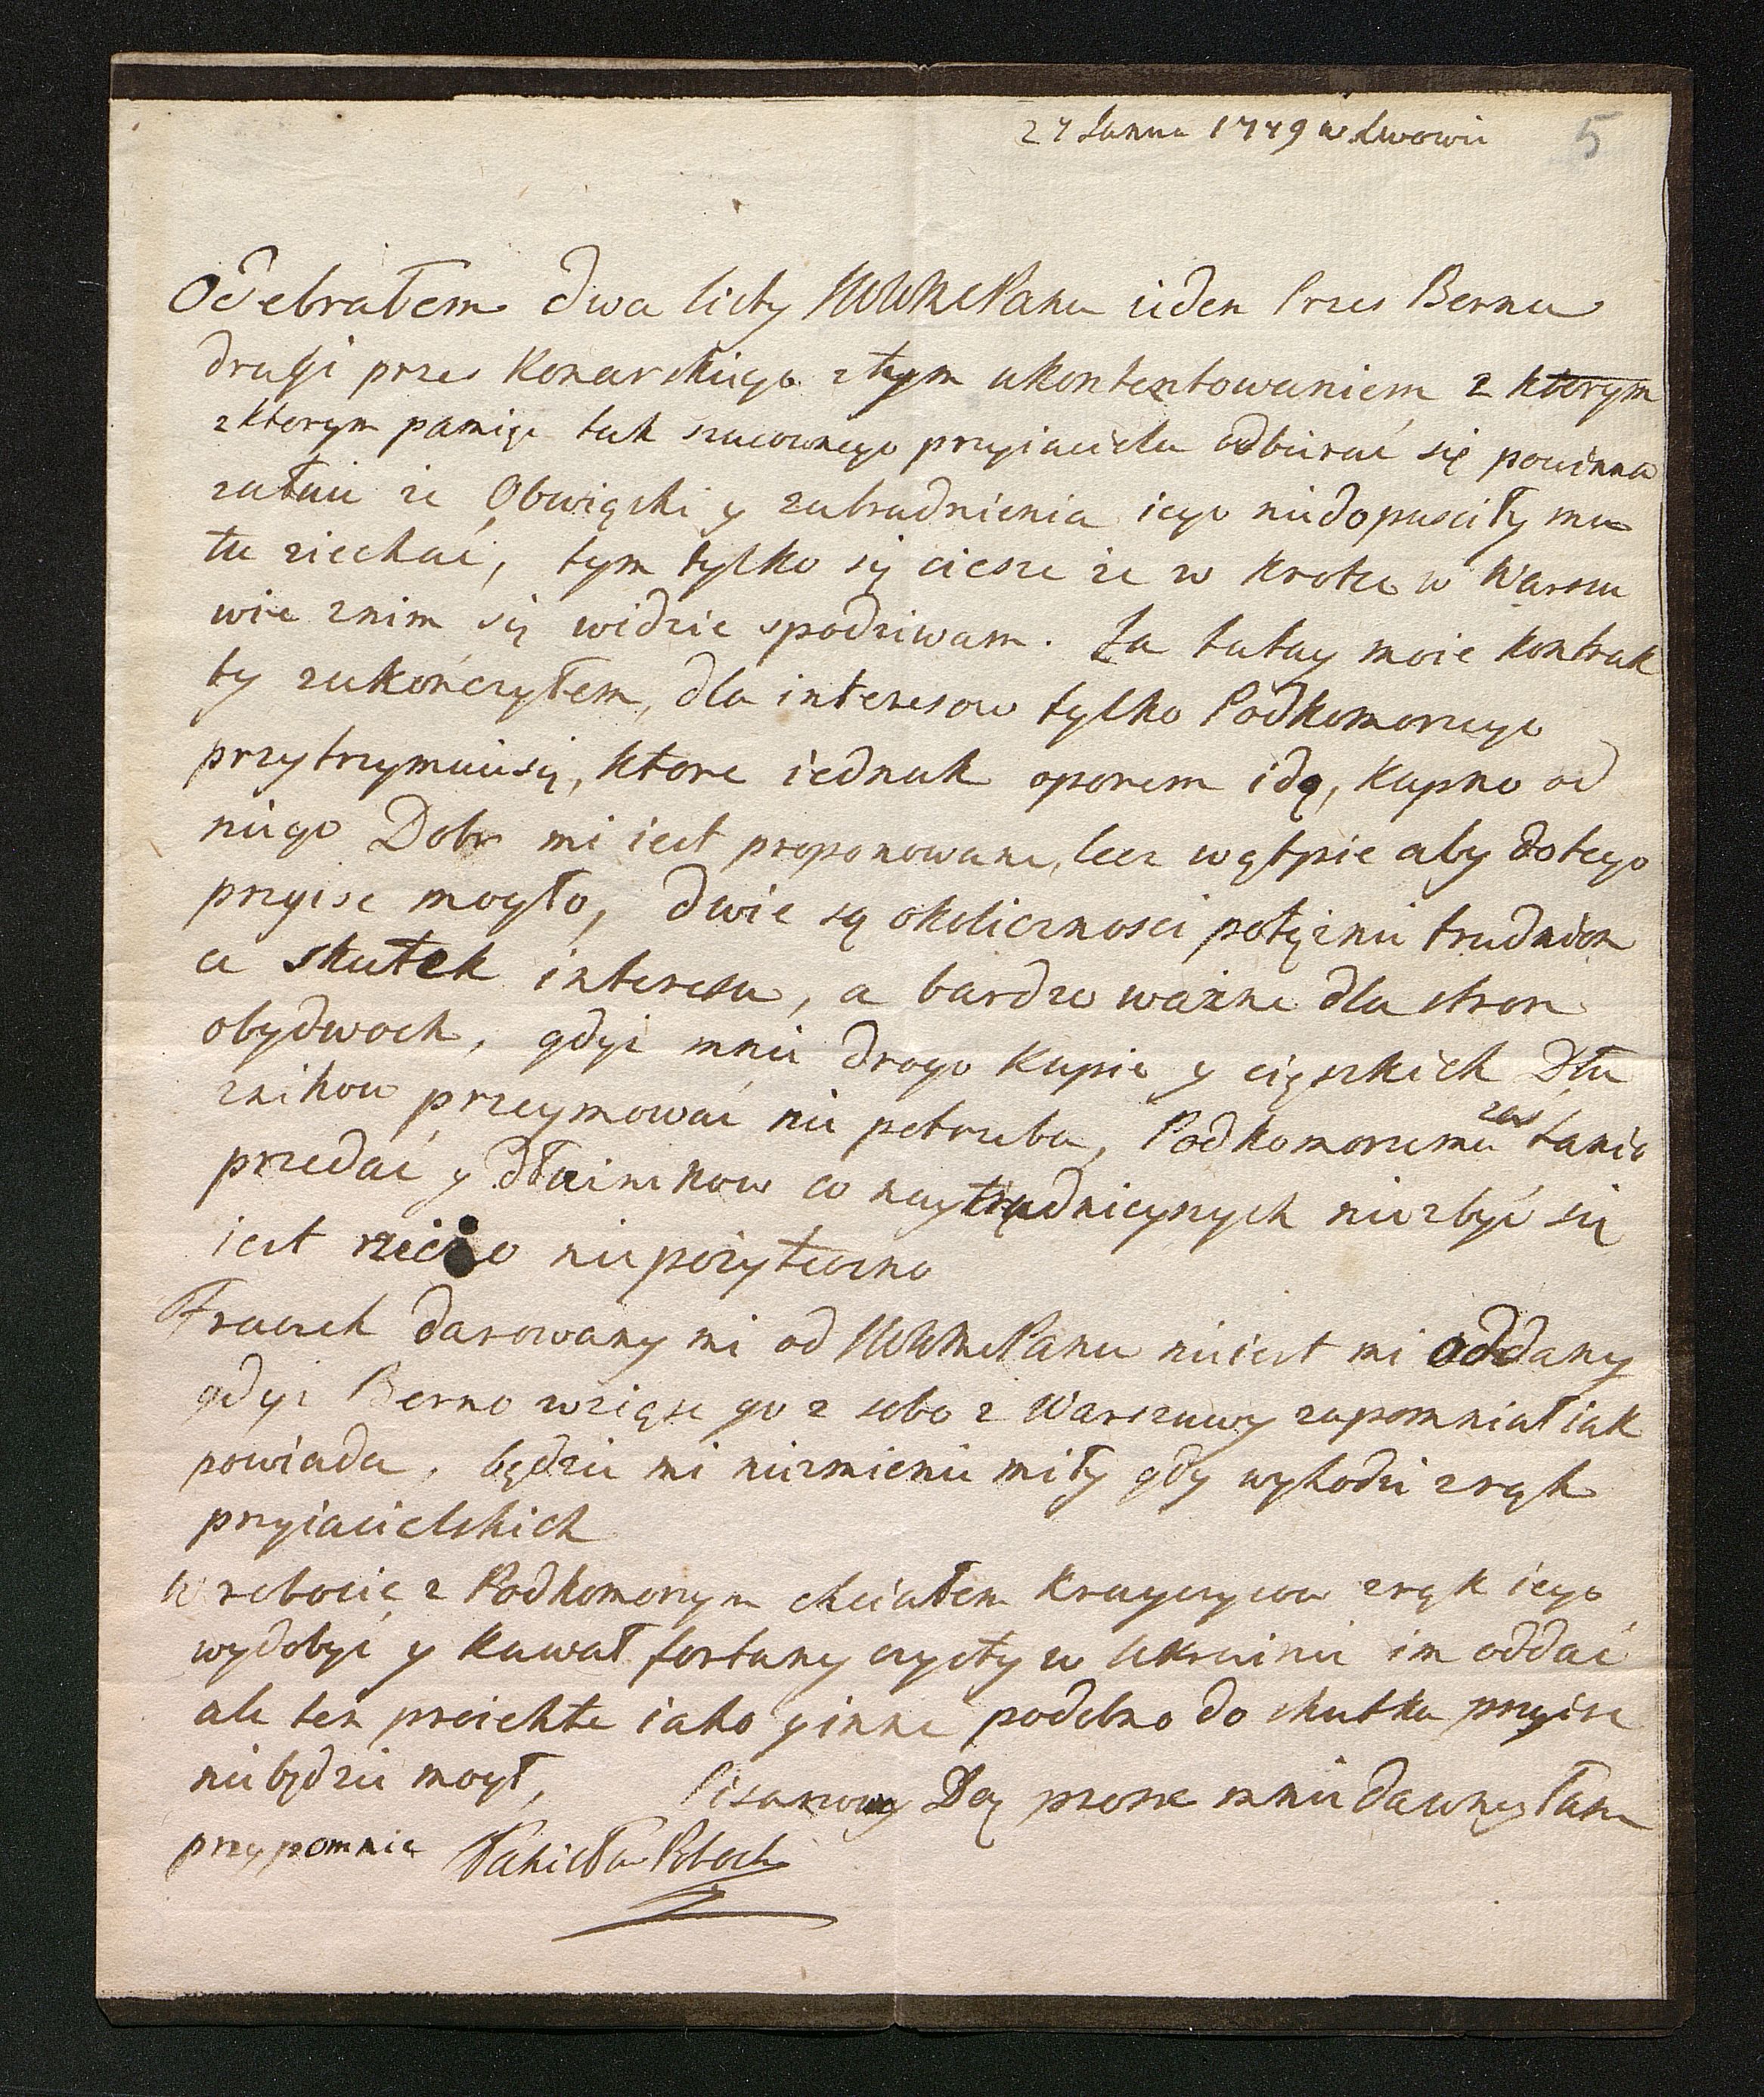 27 Janua 1779 w Lwowie
5
Odebrałem dwa listy WWMCPana ieden Przes Berna
drugi przes Konarskiego z tym ukontentowaniem z ktorym
z ktorym pamięc tak szacownego przyiaciela odbierać się powinna
załuie ze Obwiąski y zatrudnienia iego niedopusciły mu
tu ziechać, tym tylko się ciesze ze w krotce w Warsza
wie znim się widzie spodziwam. Ja tutay moie kontrak
ty zakończyłem, dla interesow tylko Podkomorzego
przytrzymuiesię, ktore iednak oporem idą, kupno od
niego Dobr mi iest proponowane, lecz wątpie aby dotego
przyisc mogło, dwie są okolicznosci potęznie trudniąc
e skutek interesu, a bardzo ważne dla stron
obydwoch, gdyż mnie drogo kupic y cięszkich Dłu
znikow przeymować nie potrzeba, Podkomorzemu zas tanio
przedać y Dłużnikow co naytrudnieyszych niezbyć się
iest rzeczo niepożyteczno
Fraczek darowany mi od WWMCPana nieiest mi oddany
gdyz Berno wziąsc go z sobo z Warszawy zapomniał iak
powiada, będzie mi niezmienie miły gdy wyhodzi z rąk
przyiacielskich
W robocie z Podkomorzym chciałem Krayczywa z rąk iego
wydobyć y kawał fortuny czysty w Ukrainie im oddać
ale ten proiekte iako y inne podobno do skutku przyisc
niebędzie mogł, Pisarzowey Dey prosze mnie dawney łasce
przypomnic Potocki